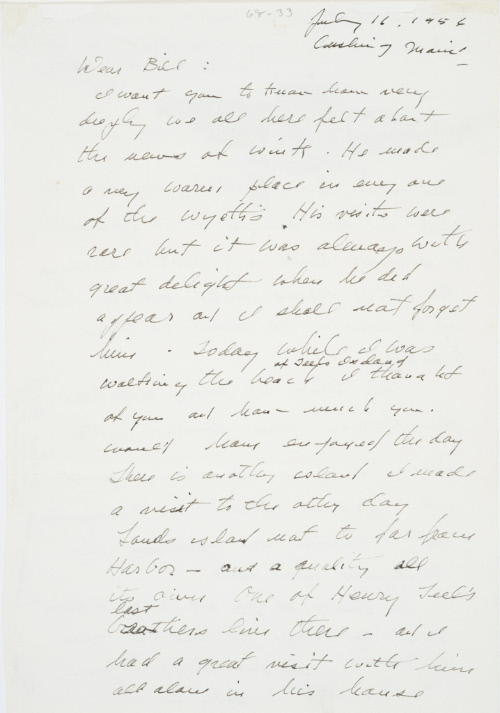 68-33
July 16, 1954
Cushing Maine
Dear Bill:
I want you to know how very
deeply we all here felt about
the news of . He made
a very warm place in every one
of the Wyeths. His visits were
rare but it was always with
great delight when he did
appear and I shall not forget
him. Today while I was
of Teels Island
walking the beach I thought
of you and how much you
would have enjoyed the day
There is another island I made
a visit to the other day
island not to far from
Harbor – and a quality all
its own One of Henry Teel's
last
brothers live there – and I
had a great visit with him
all alone in his house